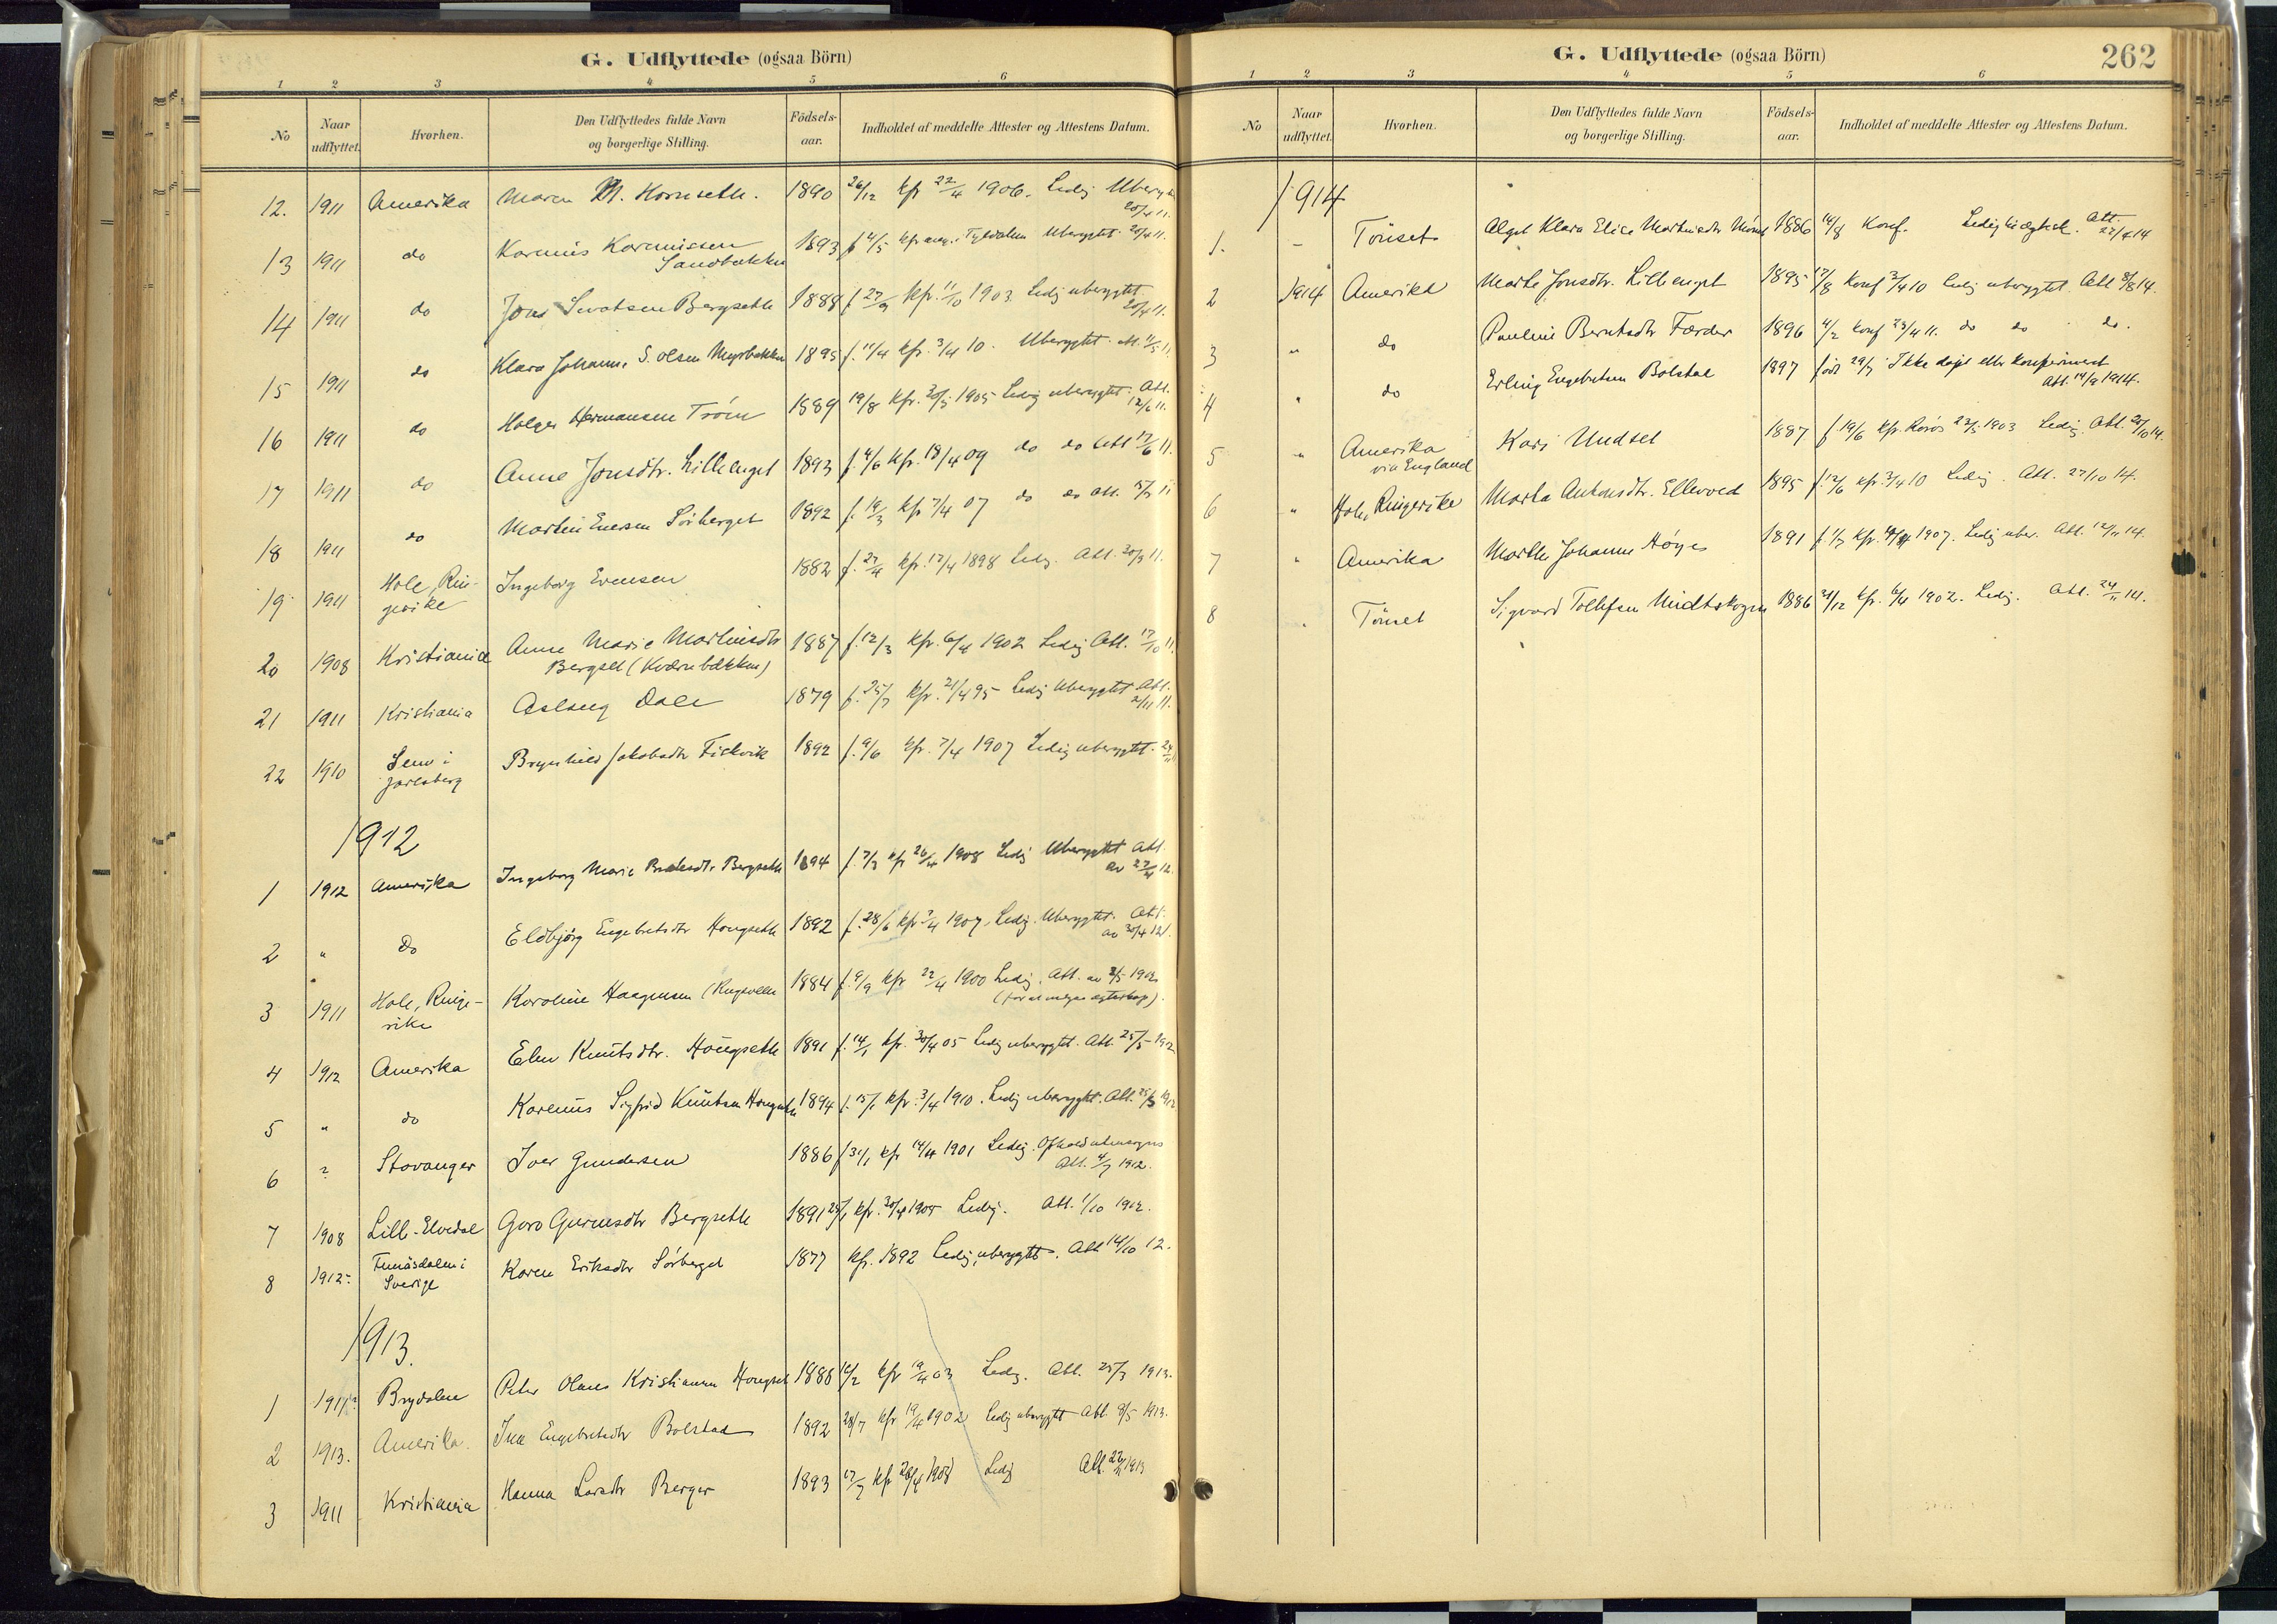 G. Udflyttede (ogsaa Börn)
1 2 3 4 5 6
No Naar udflyttet. Hvorhen. Den Udflyttedes fulde Navn og borgerlige Stilling. Födsels-aar. Indholdet af meddelte Attester og Attestens Datum.
12. 1911 Amerika Maren M. Hornseth. 1890 26/12 kf 22/4 1906. Ledig 20/4 11.
13 1911 do Karenius Kareniussen Sandbakken 1893 f 4/5 Tyldalen Uberygtet 20/4 11.
14 1911 do Jons Bergseth 1888 f. 27/9 kfr. 11/10 1903 Ledig uberygtet 20/4 11.
15 1911 do Klara Johanne S. Olsen Myrbakken 1895 f. 11/4 kfr. 3/4 10. Uberygtet
16 1911 do Holger Hermansen Tröen 1889 19/8 kfr. 30/5 1905 Ledig uberygtet. Att. 12/6 11.
17 1911 do Anne Jonsdtr. Lillenget 1893 f. 4/6 kfr. 18/4 09 do do Att 17/6 11.
18 1911 do Martin Enersen Sörberget 1892 f. 19/3 kfr 7/4 07 do do Att.
19 1911 Hole, Ringerike Ingeborg Evensen 1882 f. 27/4 kfr. 17/4 1898 Ledig. Att. 20/9 11.
20 1908 Kristiania Anne Marie Martinsdtr Bergset (Kværnbækken) 1887 f. 12/3 kfr. 6/4 1902 Ledig Att. 17/10 11.
21 1911 Kristiania Aslaug Dale 1879 f. 25/7 kfr. 21/4 95 Ledig Uberygtet Att. 2/11 11.
22 1910 Sem i Jarlsberg Brynhild Jakobsdtr Fiskvik 1892 f. 9/6 kfr. 7/4 1907 Ledig uberygtet.
1912
1 1912 Amerika Ingeborg Marie Bergseth 1894 f. 7/3 kfr 26/4 1908 Ledig Uberygtet Att. av 27/4 12.
2 " Do Eldbjörg Engebretsdtr Hougseth 1892 f. 28/6 kfr 7/4 1907. Ledig. Uberygtet. Att. av 30/4 12.
3 1911 Hole, Ringerike Karoline Haagensen 1884 f. 9/9 kfr 22/4 1900 Ledig. Att. av 2/5 1912
4 1912 Amerika Elen Knutsdtr. Hougseth 1891 f. 14/1 kfr. 30/4 05 Ledig uberygtet. Att. 25/5 1912
5 " do Karenus Sigfrid Knutsen Hougseth 1894 f. 15/1 kfr. 3/4 1910. Ledig uberygtet. Att. 25/5 1912
6 ? Stavanger Iver Gundersen 1886 f 31/1 kfr 14/4 1901 Ledig. Ophold utensogns Att. 4/7 1912.
7 1908 Lille-Elvedal Goro Bergseth 1891 kfr. 30/4 1905 Ledig. Att. 1/10 1912.
8 1912 Funäsdalen i Sverige Karen Eriksdtr Sörberget 1877 kfr. 1892 Ledig, uberygtet. Att 14/10 12.
1913.
1 Brydalen Peter Olaus Kristiansen Hougset 1888 kfr 19/4 03 Ledig. Att. 25/3 1913.
2 1913. Amerika. Ina Engebretsdtr Bolstad 1892 28/7 kfr 19/4 1902 Ledig uberygtet Att. 9/5 1913.
3 1911 Kristiania Hanna Larsdtr Berger 1893 17/7 kfr 26/4 1908 Ledig Att. 1913
G. Udflyttede (ogsaa Börn) 262
1 2 3 4 5 6
No Naar udflyttet. Hvorhen. Den Udflyttedes fulde Navn og borgerlige Stilling. Födsels-aar. Indholdet af meddelte Attester og Attestens Datum.
1914
1. - Tönset Klara Elise 1886 14/8 Konf. Att. 22/4 14
2 1914 Amerika Marte Jonsdtr. Lillenget 1895 17/8 Konf 3/4 10 Ledig uberygtet. Att 8/8 14.
3 " do Pauline Berntsdtr Færder 1896 4/2 konf 23/4 11. do do do.
4 " do Erling Engebretsen Bolstad 1897 född 29/7 Ikke døpt eller konfirmert Att. 14/9 1914.
5 " Amerika via England Kari Undset 1887 f. 19/6 kfr. Röros 1903 Ledig. Att. 20/10 14.
6 " Hole, Ringerike Marta Antonsdtr. Ellevoed 1895 f. 12/6 kfr. 3/4 10 Ledig. Att. 27/10 14.
7 " Amerika Marthe Johanne Höyes 1891 kfr. 1907. Ledig uber. Att. 12/11 14.
8 " Tönset Sigvard Tollefsen Midtskogen 1886 21/12 kfr. 6/4 1902. Ledig. Att. 24/11 14.